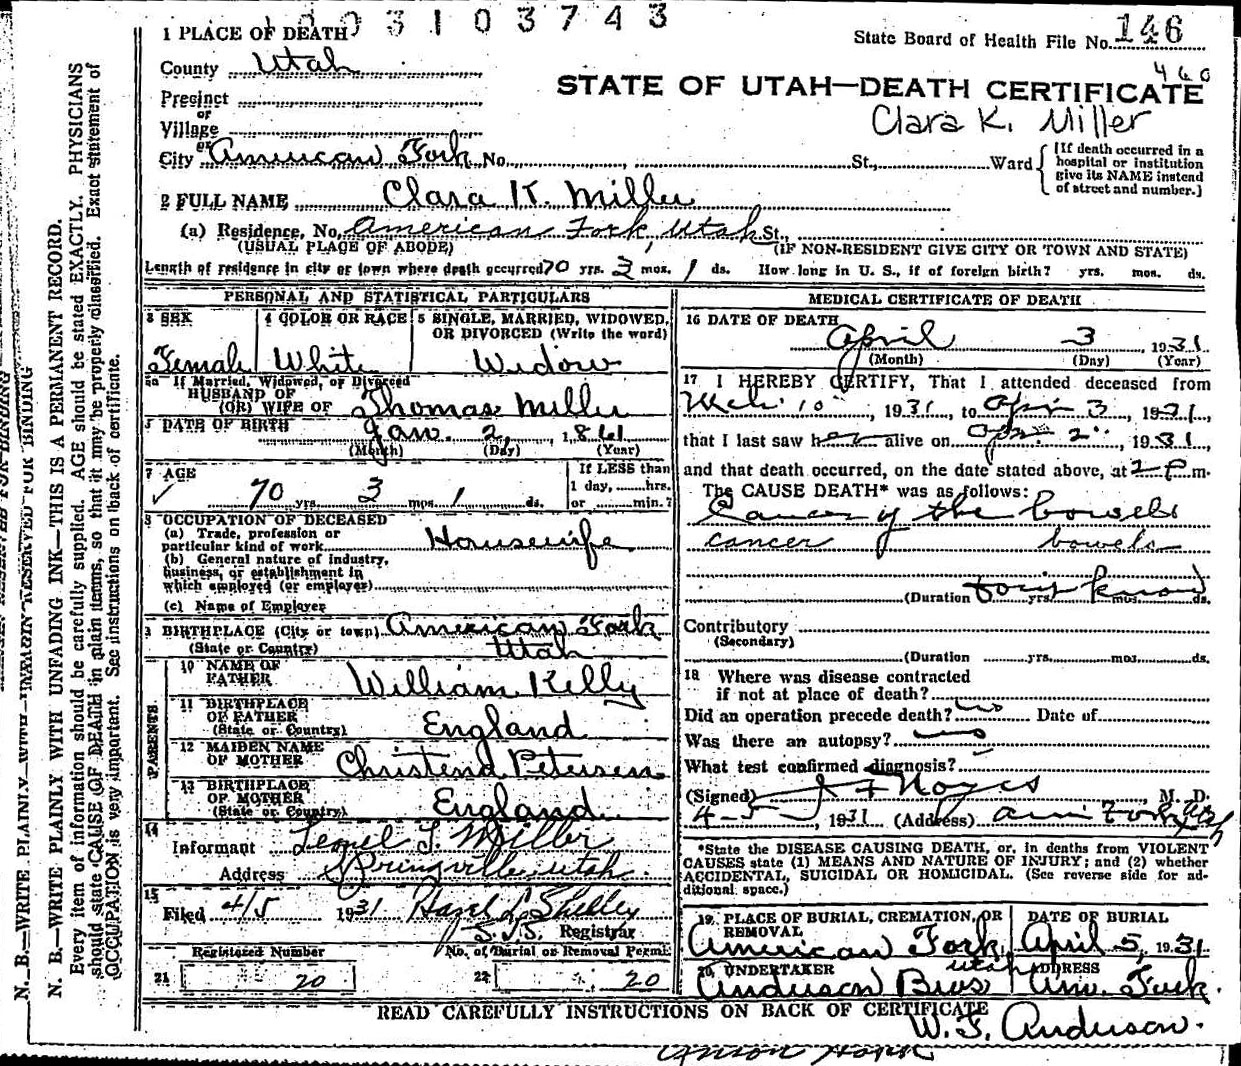 1 0 0 3 1 0 3 7 4 3
1 PLACE OF DEATH
State Board of Health File No. 146
County Utah
460
STATE OF UTAH—DEATH CERTIFICATE
Precinct
or
Clara K. Miller
Village
or
City American Fork No. St., Ward
[If death occurred in a hospital or institution give its NAME instead of street and number.]
2 FULL NAME Clara K. Miller
(a) Residence, No. American Fork, Utah St.,
(USUAL PLACE OF ABODE) (IF NON-RESIDENT GIVE CITY OR TOWN AND STATE)
Length of residence in city or town where death occurred 70 yrs. 3 mos. 1 ds. How long in U. S., if of foreign birth? yrs. mos. ds.
PERSONAL AND STATISTICAL PARTICULARS
3 SEX
Female
4 COLOR OR RACE
White
5 SINGLE, MARRIED, WIDOWED, OR DIVORCED (Write the word)
Widow
5a If Married, Widowed, or Divorced
HUSBAND OF
(OR) WIFE OF Thomas Miller
DATE OF BIRTH
Jan. 2, 1861
(Month) (Day) (Year)
7 AGE
70 yrs 3 mos 1 ds.
If LESS than
1 day, hrs.
or min.?
8 OCCUPATION OF DECEASED
(a) Trade, profession or
particular kind of work Housewife
(b) General nature of industry,
business, or establishment in
which employed (or employer)
(c) Name of Employer
9 BIRTHPLACE (City or town) American Fork
(State or Country) Utah
PARENTS
10 NAME OF
FATHER William Kelly
11 BIRTHPLACE
OF FATHER England
(State or Country)
12 MAIDEN NAME
OF MOTHER Christena Petersen
13 BIRTHPLACE
OF MOTHER England
(State or Country)
14
Informant Leonel T. Miller
Address Springville, Utah.
15
Filed 4/5 1931 Hazel L. Shelley
Registrar
Registered Number
21 20
No. of Burial or Removal Permit
22 20
MEDICAL CERTIFICATE OF DEATH
16 DATE OF DEATH
April 3, 1931
(Month) (Day) (Year)
17 I HEREBY CERTIFY, That I attended deceased from
Mch. 10, 1931, to Apr 3, 1931,
that I last saw her alive on Apr. 2, 1931,
and that death occurred, on the date stated above, at 2 P m.
The CAUSE DEATH* was as follows:
Cancer of the bowels
cancer bowels
(Duration Don't know yrs. mos. ds.
Contributory
(Secondary)
(Duration yrs. mos. ds.
18 Where was disease contracted
if not at place of death?
Did an operation precede death? no Date of
Was there an autopsy? no
What test confirmed diagnosis?
(Signed) J F Noyes, M. D.
4-5, 1931 (Address) Am Fork Utah
*State the DISEASE CAUSING DEATH, or, in deaths from VIOLENT
CAUSES state (1) MEANS AND NATURE OF INJURY; and (2) whether
ACCIDENTAL, SUICIDAL OR HOMICIDAL. (See reverse side for ad-
ditional space.)
19 PLACE OF BURIAL, CREMATION, OR
REMOVAL
American Fork, Utah
DATE OF BURIAL
April 5, 1931
20 UNDERTAKER
Anderson Bros
ADDRESS
Am. Fork.
READ CAREFULLY INSTRUCTIONS ON BACK OF CERTIFICATE
W. F. Anderson.
MARGIN RESERVED FOR BINDING
N. B.—WRITE PLAINLY WITH UNFADING INK—THIS IS A PERMANENT RECORD.
Every item of information should be carefully supplied. AGE should be stated EXACTLY. PHYSICIANS
should state CAUSE OF DEATH in plain terms, so that it may be properly classified. Exact statement of
OCCUPATION is very important. See instructions on back of certificate.